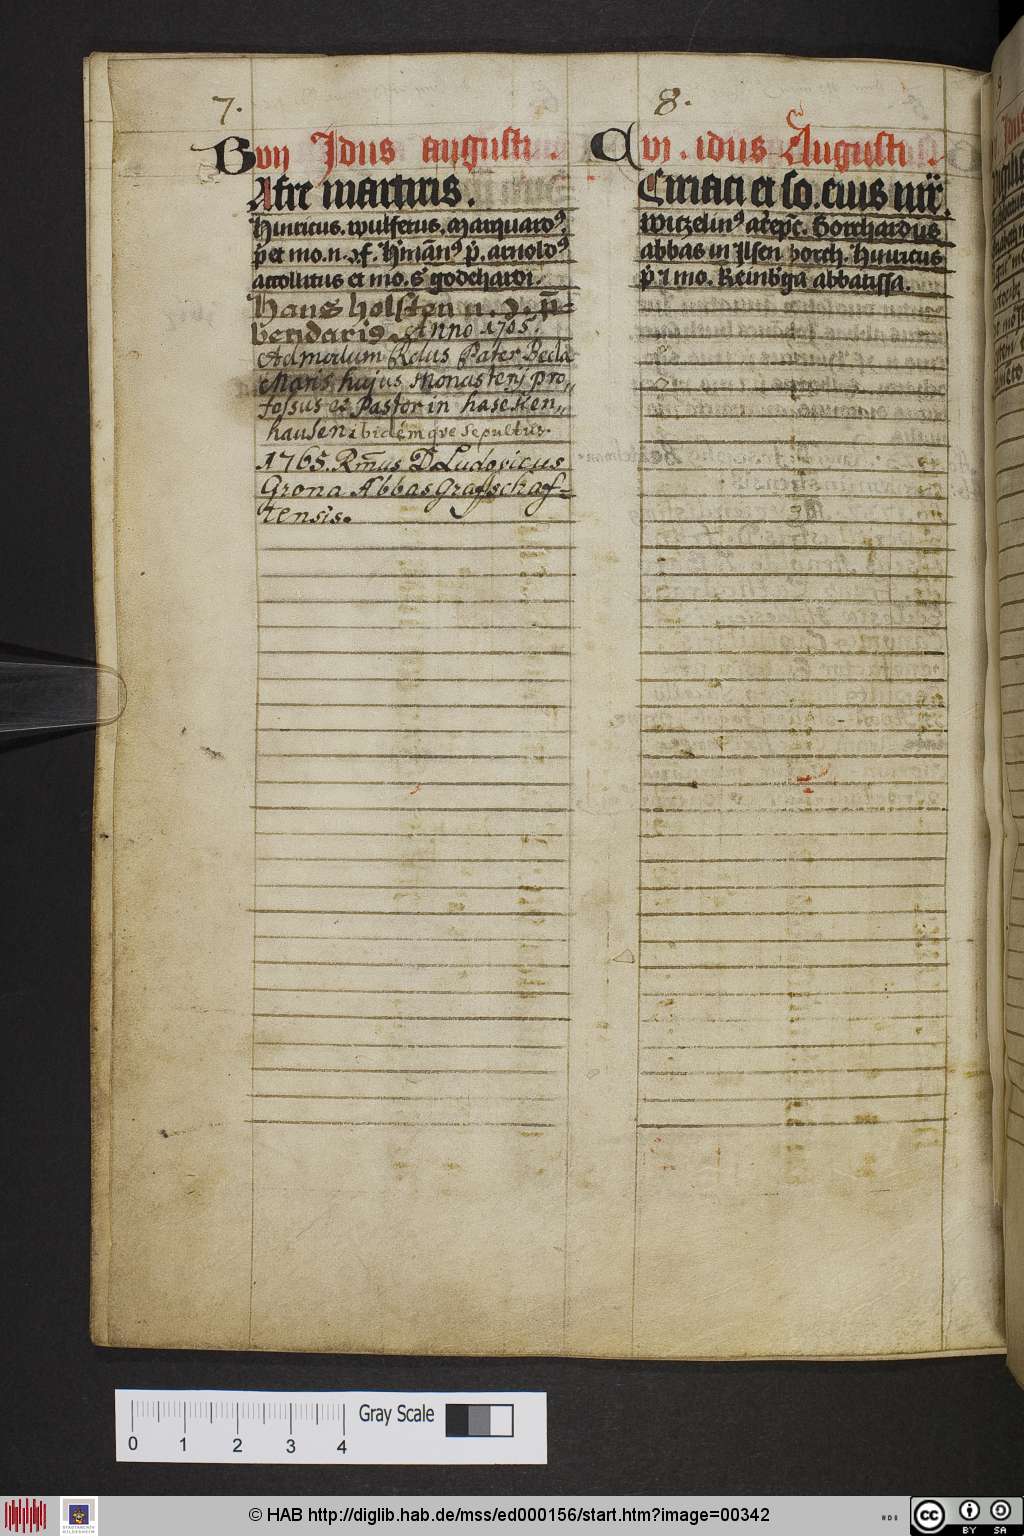 7.
B vij Jdus augusti.
Afre martiris.
Hinricus. wulferus. marquard9.
p̄ et mo. n. s. f. H'mān9 p̄. arnold9
accolitus et mo. s. godehardi.
Hans holsten n. d. p̄-
bendari9. Anno 1705.
Admodum Rdus Pater Beda
Maris hujus Monasterij pro,,
fossus et Pastor in hasecken,,
hausen ibidemqve sepultus.
1765. Rm̄us D. Ludovicus
Grona Abbas Grafschaf=
tensis.
8.
C vj. idus Augusti.
Ciriaci et so. eius mr̄.
witzelin9 arc̄ep̄c. Borchardus
abbas in Jlsenborch. Hinricus
p̄ 7 mo. Reinb'ga abbatissa.
0 1 2 3 4
Gray Scale
© HAB http://diglib.hab.de/mss/ed000156/start.htm?image=00342
cc BY SA